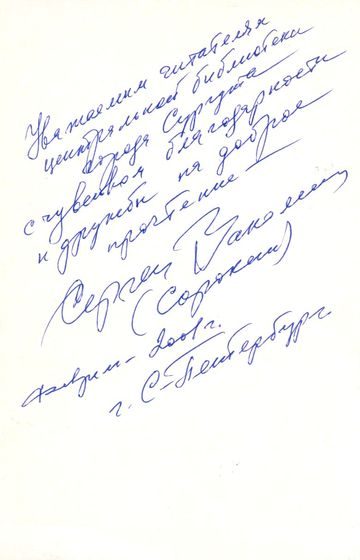 Уважаемым читателям
центральной библиотеки
города Сургута
с чувством благодарности
и дружбы на доброе
прочтение —
Сергей
(Сорокин)
февраль - 2001 г.
г. С-Петербург.